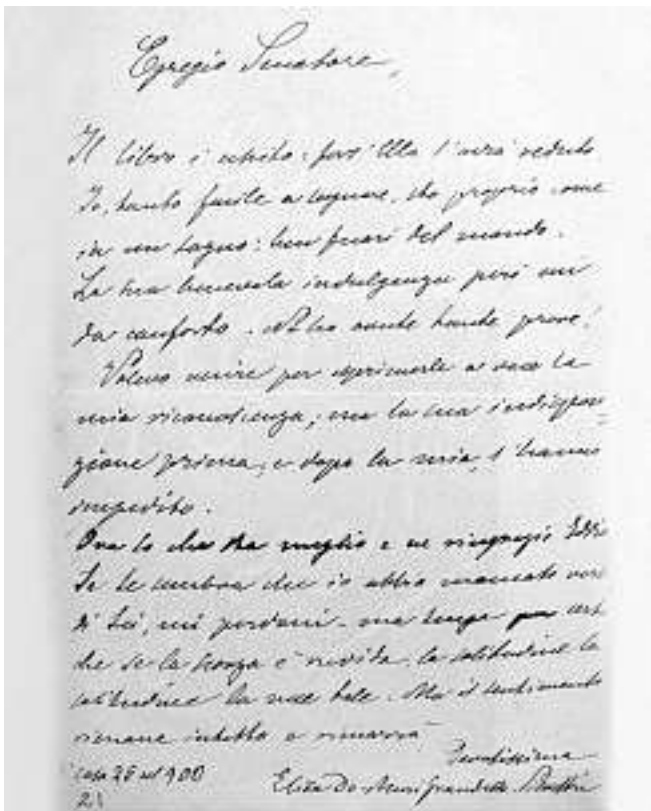 Egregio Senatore,
Il libro è uscito: forse Ella l'avrà veduto.
Io, tanto facile a sognare, sto proprio come
in un sogno: ben fuori del mondo.
La sua benevola indulgenza però mi
da conforto. N'ho avute tante prove!
Volevo venire per esprimerle a voce la
mia riconoscenza; ma la sua indispos=
zione prima, e dopo la mia, l'hanno
impedito.
Ora so che sta meglio e ne ringrazio Iddio
Se le sembra che io abbia mancato verso
di Lei, mi perdoni - ma
che se la scorza è ruvida, la solitudine la
solitudine la rese tale. Ma il sentimento
rimane intatto e rimarrà
Devotissima
Casa 28 del 900
Eliza De Muri Grandesso Silvestri
21